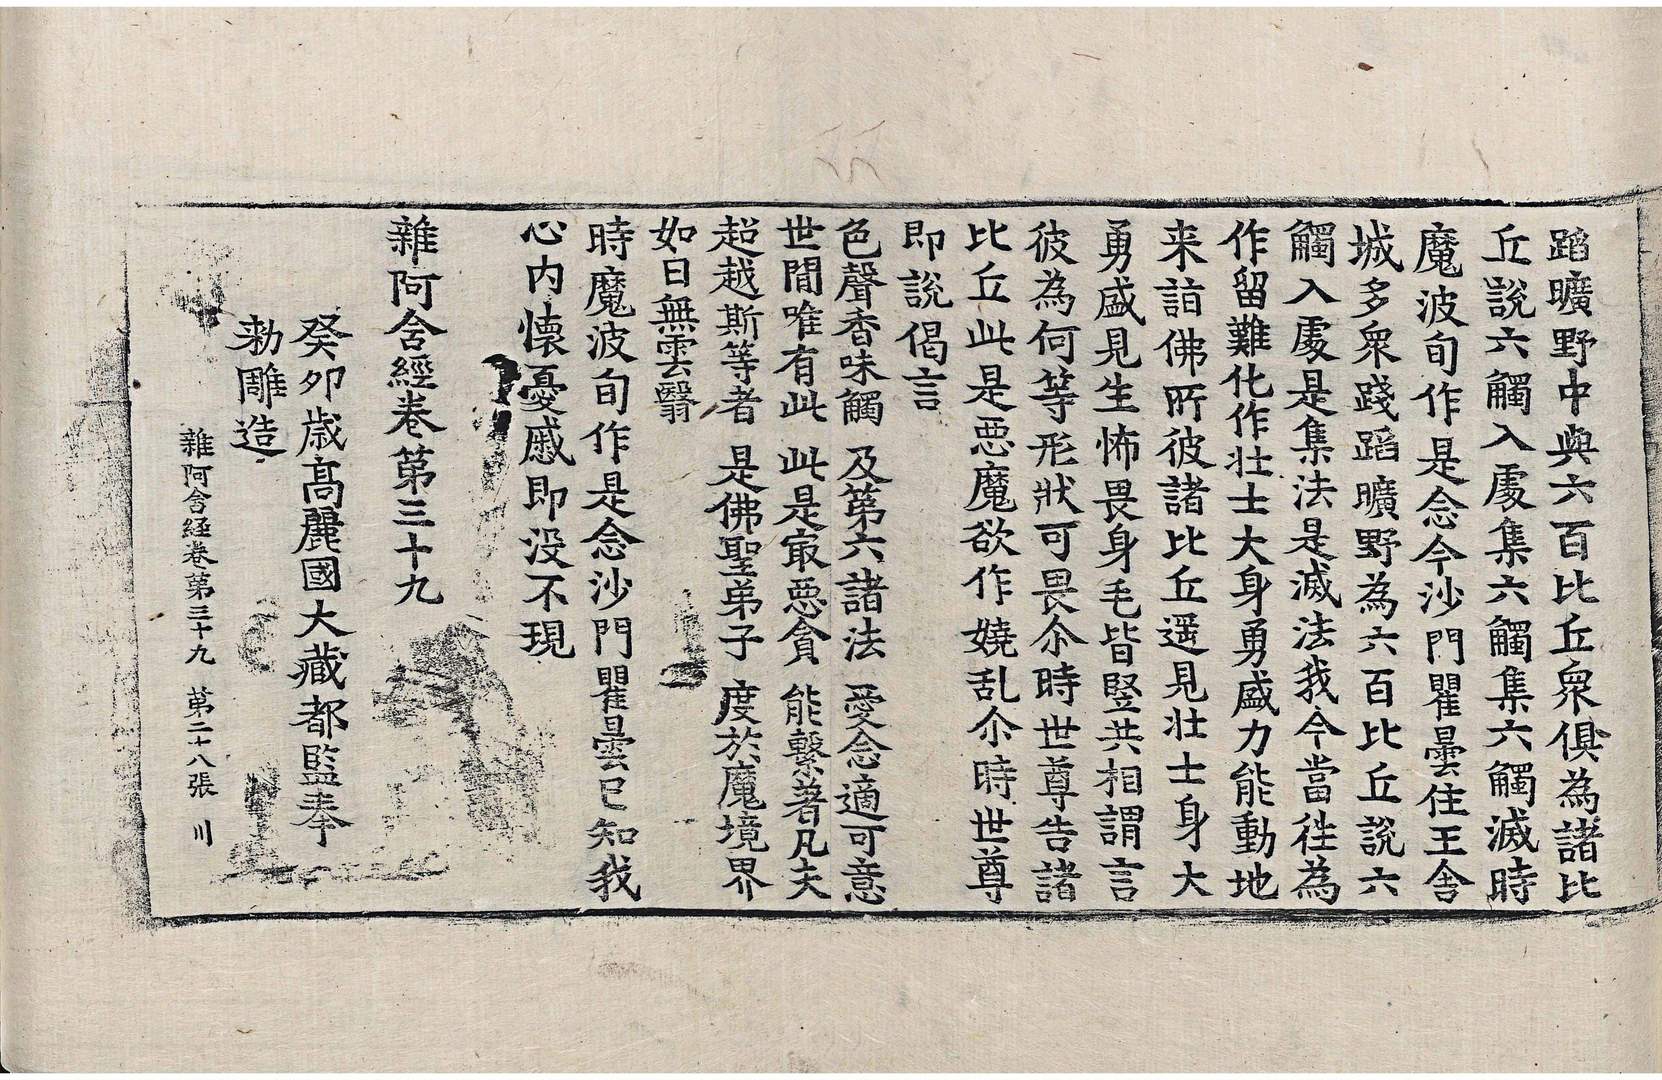 蹈曠野中與六百比丘衆俱為諸比
丘說六觸入處集六觸集六觸滅時
魔波旬作是念今沙門瞿曇住王舍
城多衆踐蹈曠野為六百比丘說六
觸入處是集法是滅法我今當徃為
作留難化作壮士大身勇盛力能動地
来詣佛所彼諸比丘遥見壮士身大
勇盛見生怖畏身毛皆竪共相謂言
彼為何等形狀可畏尒時世尊告諸
比丘此是惡魔欲作嬈乱尒時世尊
即說偈言
色聲香味觸 及第六諸法 愛念適可意
世間唯有此 此是㝡惡貪 能繫著凡夫
超越斯等者 是佛聖弟子 度於魔境界
如日無雲翳
時魔波旬作是念沙門瞿曇已知我
心内懐憂慼即没不現
雜阿含經卷第三十九
癸卯歳高麗國大藏都監奉
勑雕造
雜阿含経卷第三十九 第二十八張 川